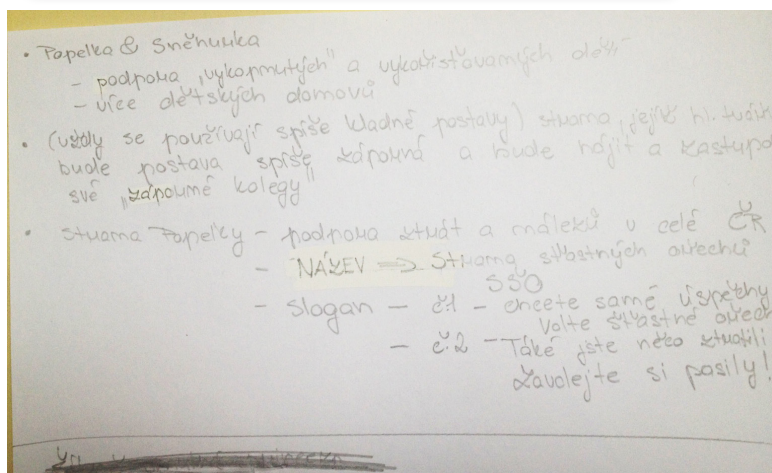 • Popelka & Sněhurka
- podpora "vykopnutých" a vykořisťovaných dětí
- více dětských domovů
• (vždy se používají spíše kladné postavy) strana, jejíž hl. tváří
bude postava spíše záporná a bude hájit a zastupo
své "záporné kolegy"
• strana Popelky - podpora ztrát a nálezů v celé ČR
- NÁZEV => Strana šťastných ořechů
SŠO
- slogan - č.1 - chcete samé úspěchy
Volte šťastné ořech
- č.2 - Také jste něco ztratili
Zavolejte si posily!